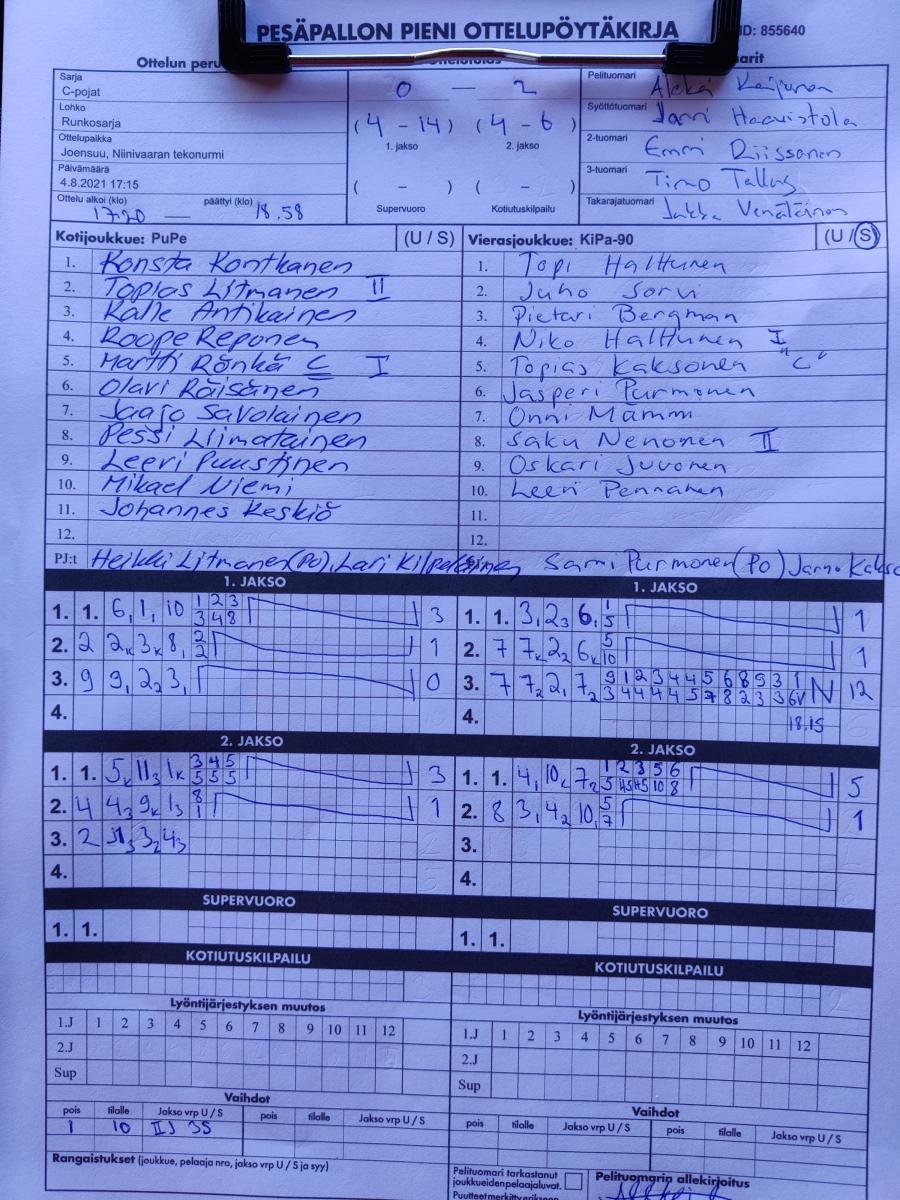 PESÄPALLON PIENI OTTELUPÖYTÄKIRJA
ID: 855640
Ottelun
Sarja
C-pojat
Lohko
Runkosarja
Ottelupaikka
Joensuu, Niinivaaran tekonurmi
Päivämäärä
4.8.2021 17:15
Ottelu alkoi (klo) päättyi (klo)
17.20 — 18.58
0 — 2
(4 - 14) (4 - 6)
1. jakso 2. jakso
( - ) ( - )
Supervuoro Kotiutuskilpailu
Pelituomari
Syöttötuomari Janni Haavistola
2-tuomari Emmi Riissanen
3-tuomari Timo Tallus
Takarajatuomari Jukka Venäläinen
Kotijoukkue: PuPe (U / S)
1. Konsta Kontkanen
2. Topias Litmanen II
3. Kalle Antikainen
4. Roope Reponen
5. Martti Rönkä C I
6. Olavi Räisänen
7. Jaajo Savolainen
8. Pessi Liimatainen
9. Leevi Puustinen
10. Mikael Niemi
11. Johannes Keskiö
12.
PJ:t Heikki Litmanen (PO), Lari Kilpeläinen
Vierasjoukkue: KiPa-90 (U / S)
1. Topi Halttunen
2. Juho Sorvi
3. Pietari Bergman
4. Niko Halttunen I
5. Topias Kaksonen "C"
6. Jasperi Purmonen
7. Onni Mämmi
8. Saku Nenonen II
9. Oskari Juvonen
10. Leevi Pennanen
11.
12.
Sami Purmonen (PO) Jarmo Kakso
1. JAKSO
1. 1. 6, 1, 10 1 2 3 3
3 4 8
2. 2 2x 3x 8, 2 1
2
3. 9 9, 2 2 3, 0
4.
1. JAKSO
1. 1. 3, 2 3 6, 1 1
5
2. 7 7x 2 2 6x 5 1
10
3. 7 7 2 2, 7 2 N 12
4. 18.15
2. JAKSO
1. 1. 5x 11 3 1x 3 4 5 3
5 5 5
2. 4 4 3 9x 1 3 8 1
1
3. 2 3 2 4 3
4.
2. JAKSO
1. 1. 4, 10x 7 2 1 2 3 5 6 5
2. 8 3, 4 2 10, 5 1
7
3.
4.
SUPERVUORO
1. 1.
SUPERVUORO
1. 1.
KOTIUTUSKILPAILU
KOTIUTUSKILPAILU
Lyöntijärjestyksen muutos
1.J 1 2 3 4 5 6 7 8 9 10 11 12
2.J
Sup
Lyöntijärjestyksen muutos
1.J 1 2 3 4 5 6 7 8 9 10 11 12
2.J
Sup
Vaihdot
pois tilalle Jakso vrp U / S pois tilalle Jakso vrp U / S
1 10 IIJ 3S
Vaihdot
pois tilalle Jakso vrp U / S pois tilalle Jakso vrp U / S
Rangaistukset (joukkue, pelaaja nro, jakso vrp U / S ja syy)
Pelituomari tarkastanut
joukkueidenpelaajaluvat.
Puutteet merkitty erikseen
Pelituomarin allekirjoitus